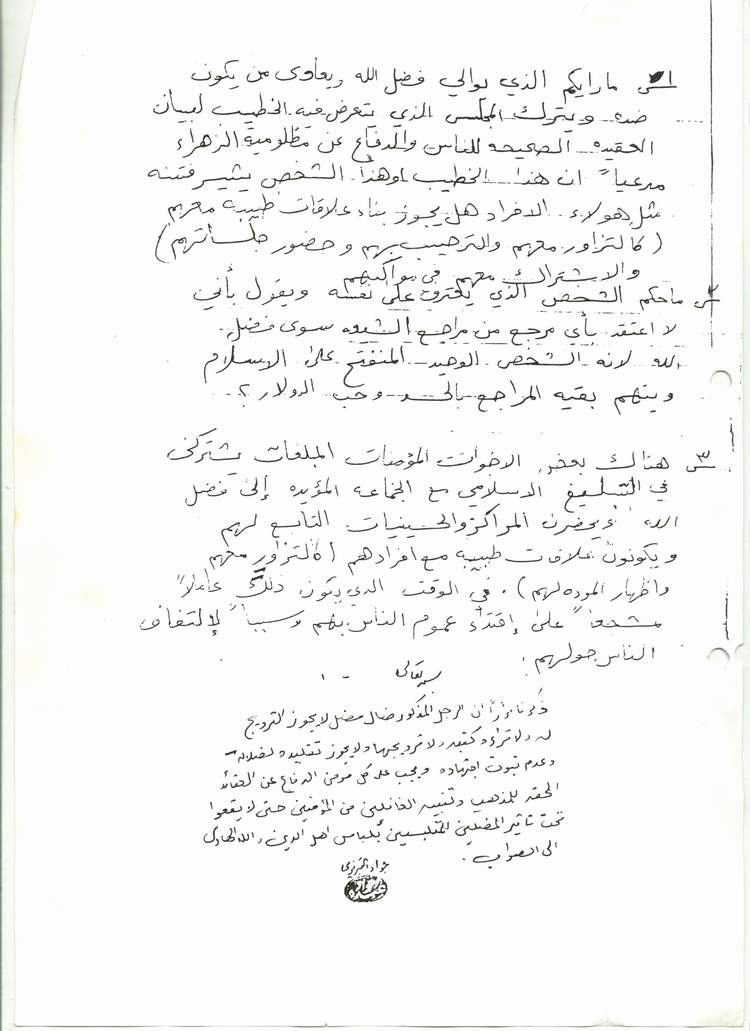 س١ ما رايكم الذي يوالي فضل الله ويعادى من يكون
ضده ويترك المجلس الذي يتعرض فيه الخطيب لبيان
العقيده الصحيحه للناس والدفاع عن مظلومية الزهراء
مدعياً ان هذا الخطيب اوهذا الشخص يثير فتنه
مثل هولاء الافراد هل يجوز بناء علاقات طيبه معهم
(كالتزاور معهم والترحيب بهم و حضور جلساتهم)
والاشتراك معهم في مواكبهم
س٢ ماحكم الشخص الذي يعترف على نفسه ويقول بأني
لا اعتقد بأي مرجع من مراجع الشيعه سوى فضل
الله لانه الشخص الوحيد المنفتح على الاسلام
ويتهم بقيه المراجع وحب الدولار ؟
س٣ هناك بعض الاخوات المؤمنات المبلغات يشتركن
في التبليغ الاسلامي مع الجماعه المؤيده إلى فضل
الله ويحضرن المراكز والحسينيات التابع لهم
ويكونون علاقات طيبه مع افرادهم (كالتزاور معهم
واظهار الموده لهم). في الوقت الذي يكون ذلك عاملاً
مشجعاً على إقتداء عموم الناس بهم وسبباً لإلتفاف
الناس حولهم.
بسمه تعالى
ذكرنا مراراً ان الرجل المذكور ضال مضل لايجوز الترويج
له ولا قراءة كتبه ولا ترويجها ولا يجوز تقليده لضلاله
وعدم ثبوت اجتهاده ويجب على كل مومن الدفاع عن العقائد
الحقه للمذهب وتنبيه الغافلين من المؤمنين حتى لا يقعوا
تحت تاثير المضلين المتلبسين بلباس اهل الدين والله الهادي
الى الصواب.
جواد التبريزي